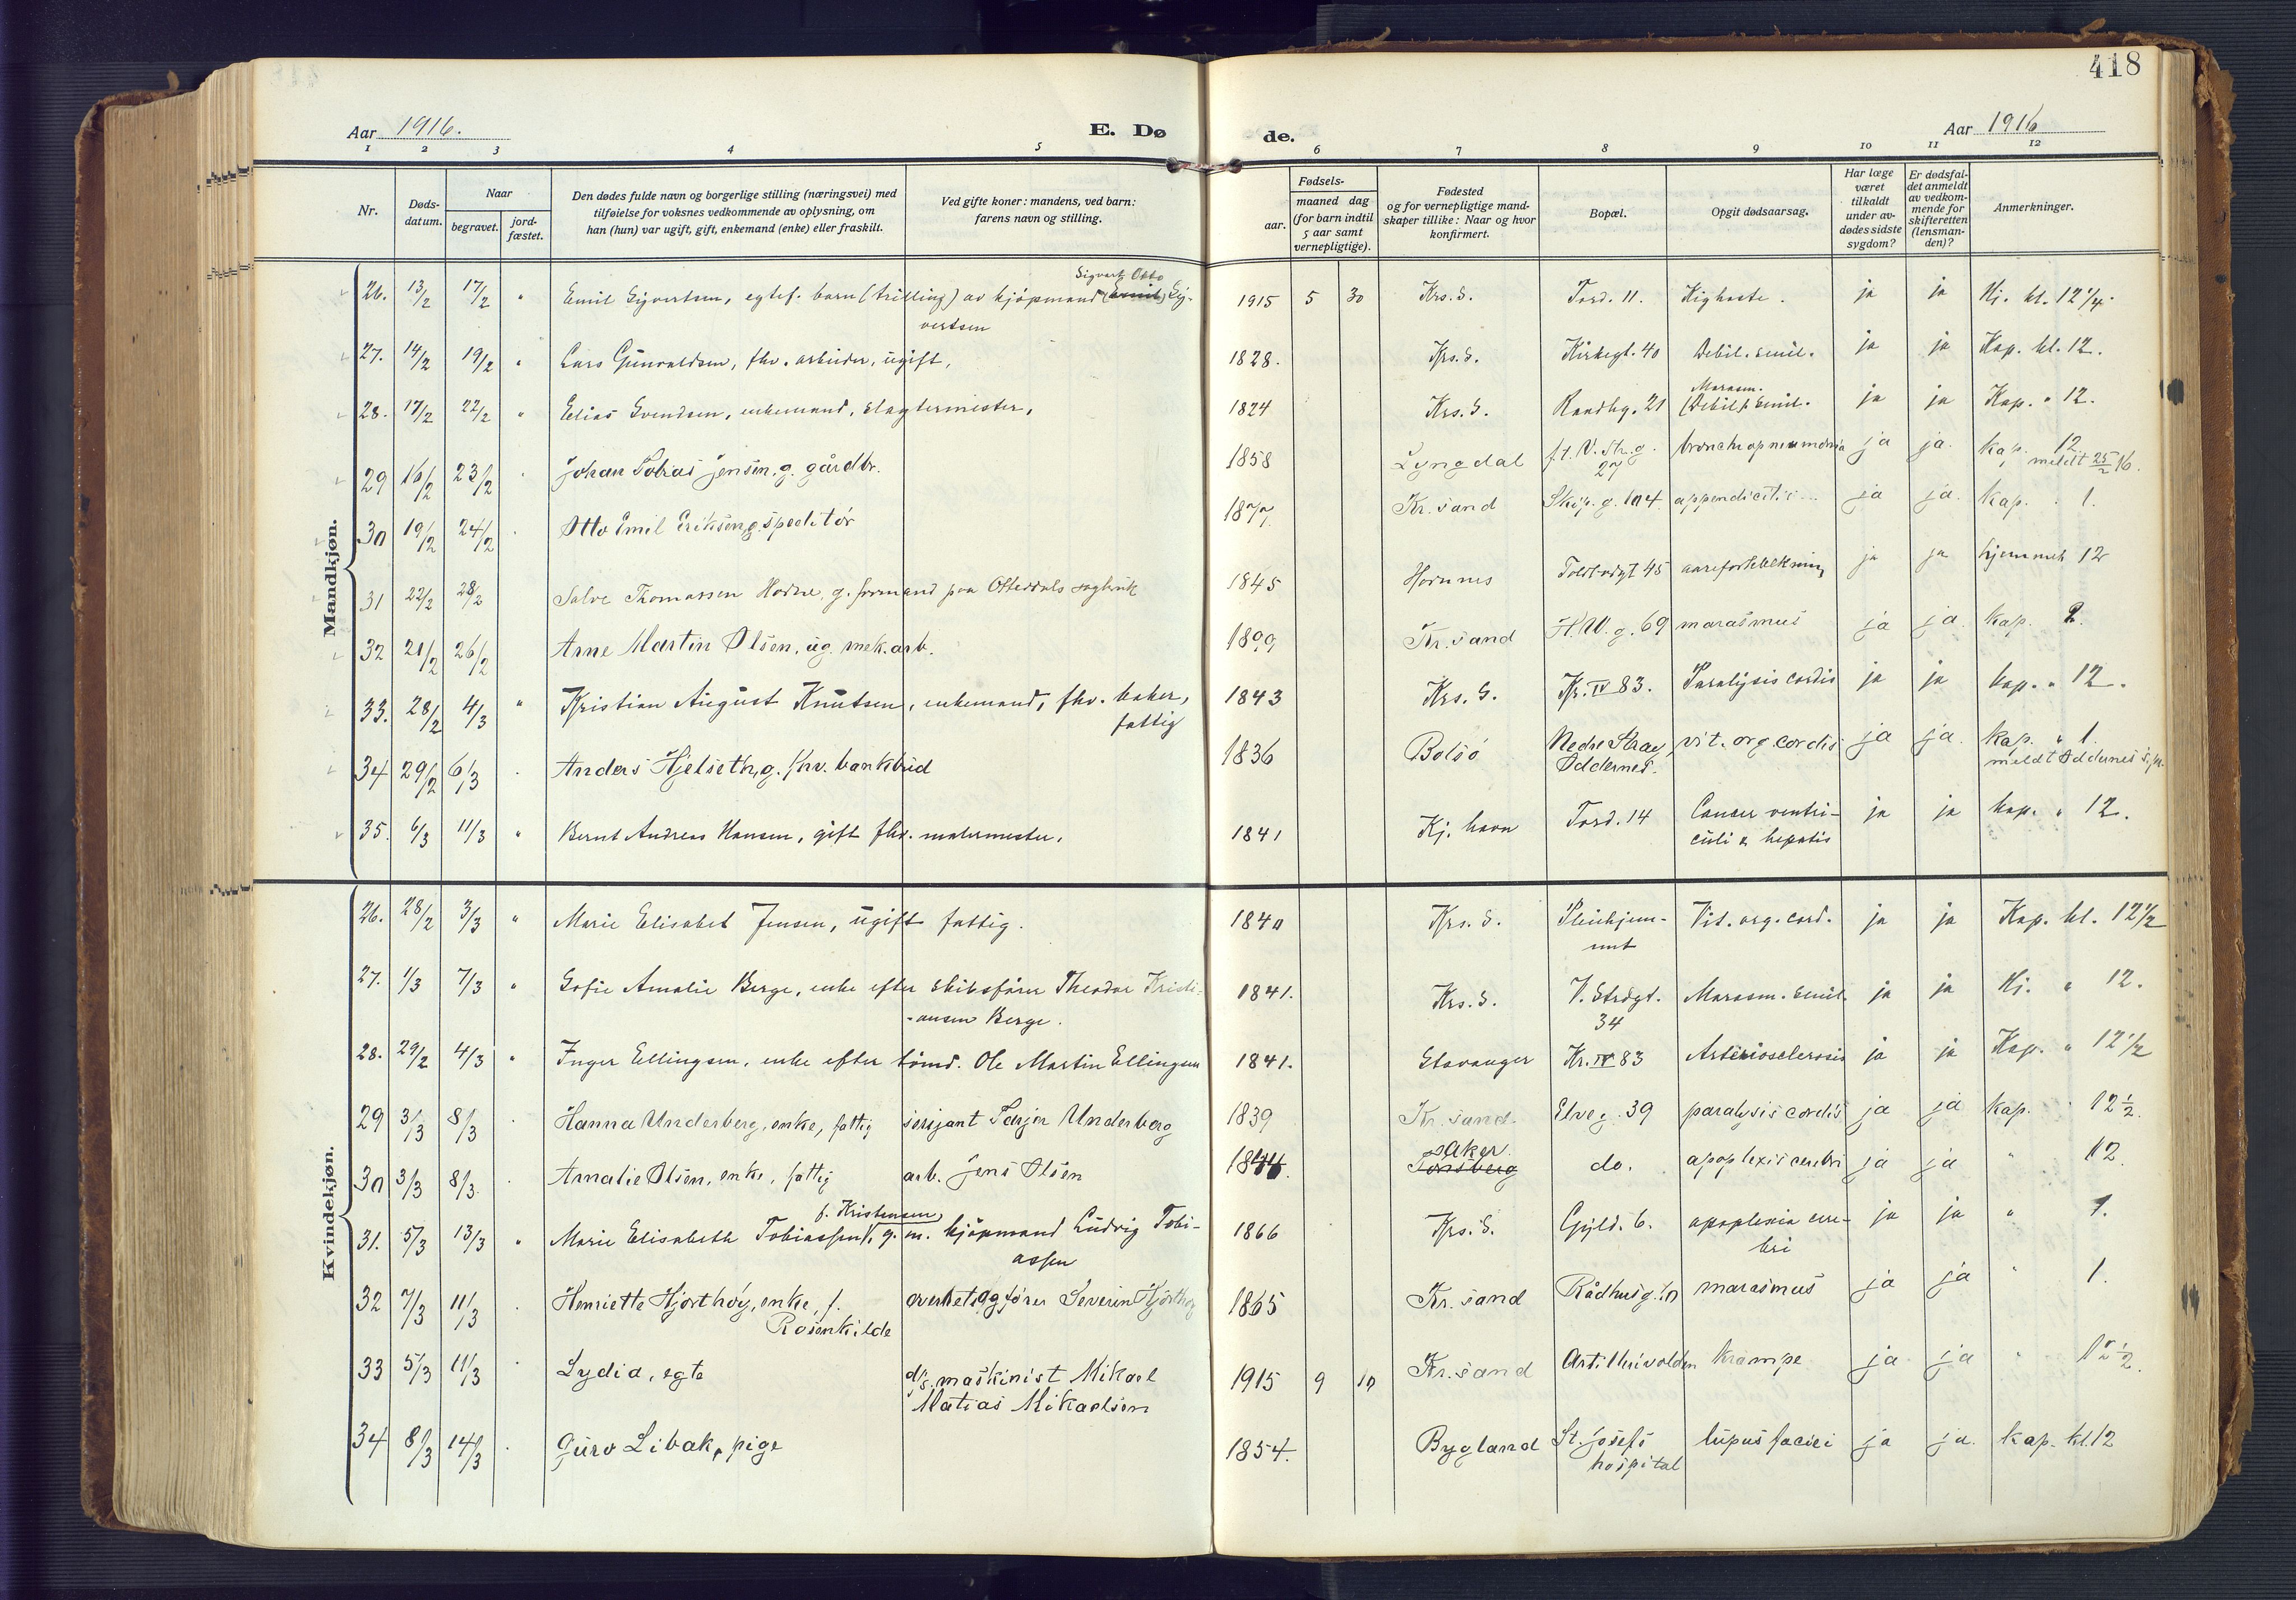 418
Aar 1916.
E. Dø de.
Aar 1916
1 2 3 4 5 6 7 8 9 10 11 12
Nr.
Døds-
datum.
Naar
begravet.
jord-
fæstet.
Den dødes fulde navn og borgerlige stilling (næringsvei) med
tilføielse for voksnes vedkommende av oplysning, om
han (hun) var ugift, gift, enkemand (enke) eller fraskilt.
Ved gifte koner: mandens, ved barn:
farens navn og stilling.
Fødsels-
aar.
maaned dag
(for barn indtil
5 aar samt
vernepligtige).
Fødested
og for vernepligtige mand-
skaper tillike: Naar og hvor
konfirmert.
Bopæl.
Opgit dødsaarsag.
Har læge
været
tilkaldt
under av-
dødes sidste
sygdom?
Er dødsfal-
det anmeldt
av vedkom-
mende for
skifteretten
(lensman-
den)?
Anmerkninger.
Mandkjøn.
Sigvart Otto
26. 13/2 17/2 " Emil Syvertsen, egtef. barn (trilling) av kjøpmand (Emil) Sy- 1915 5 30 Krs.S. Tord. 11. Kighoste. ja ja Hj. kl. 12 1/4.
vertsen
27. 14/2 19/2 " Lars Gunvaldsen, fhv. arbeider, ugift, 1828. Krs.S. Kirkegt. 40 Debil. senil. ja ja Kap. kl. 12.
Marasm.
28. 17/2 22/2 " Elias Svendsen, enkemand, slagtermester, 1824 Krs.S. Randhg. 21 (Debil) senil. ja ja Kap. " 12.
29 16/2 23/2 " Johan Tobias Jensen, g. gårdbr. 1858 Lyngdal f.t. V. Str.g. bronchopneumonia ja ja. kap. 12
27 meldt 25/2 16.
30 19/2 24/2 . Otto Emil Eriksen, g. speditør 1877. Kr.sand Skip.g. 104. appendicitis ja ja. kap. " 1.
31 22/2 28/2 Salve Thomassen Hodne, g. formand paa Otteddals sagbruk 1845 Hornnes Toldbodgt 45 aareforkalkning ja ja hjemmet 12
32 21/2 26/2 Arne Martin Olsen, ug. mek. arb. 1899 Kr.sand H.W.g. 69 marasmus ja ja. kap. 2.
33. 28/2 4/3 " Kristian August Knutsen, enkemand, fhv. baker, 1843 Krs.S. Kr. IV 83. Paralysis cordis ja ja kap. " 12.
fattig
34 29/2 6/3 . Anders Hjelseth, g. fhv. bankbud 1836 Bolsø Nedre Strae vit. org. cordis ja ja. kap. " 1.
Oddernes. meldt Oddernes s.p.
35. 6/3 11/3 " Bernt Andreas Hansen, gift fhv. malermester, 1841 Kj. havn Tord. 14 Cancer ventri- ja ja kap. " 12.
culi & hepatis
Kvindekjøn.
26. 28/2 3/3 " Marie Elisabet Jensen, ugift fattig. 1840 Krs. S. Pleiehjem- Vit. org. cord. ja ja Kap. kl. 12 1/2
met
27. 1/3 7/3 " Sofie Amalie Berge, enke efter skibsfører Theodor Kristi- 1841. Krs. S. V. Strdgt. Marasm. senil. ja ja Hj. " 12.
-ansen Berge. 34
28. 29/2 4/3 " Inger Ellingsen, enke efter tømd. Ole Martin Ellingsen 1841. Stavanger Kr. IV 83 Arteriosclerosis ja ja Kap. " 12 1/2
29 3/3 8/3 . Hanna Underberg, enke, fattig serjant Tarjer Underberg 1839 Kr.sand. Elveg. 39 paralysis cordis ja ja kap. " 12 1/2.
Aker.
30 3/3 8/3. Amalie Olsen, enke, fattig arb. Jens Olsen 1844. Tønsberg do. apoplexis cerebri ja ja " 12.
f. Kristensen,
31. 5/3 13/3 " Marie Elisabeth Tobiassen, g. m. kjøpmand Ludvig Tobi- 1866 Krs. S. Gyld. 6. apoplexia cere- ja ja " 1.
assen bri
32 7/3 11/3 . Henriette Hjorthøy, enke, f. overretssagfører Severin Hjorthøy 1865 Kr.sand Rådhusg. 10 marasmus ja ja " 1.
Rosenkilde
33 5/3 11/3 . Lydia, egte d/s. maskinist Mikael 1915 9 10 Kr.sand Artillerivolden krampe ja ja " 12 1/2.
Matias Mikaelsen
34 8/3 14/3 . Guro Libak, pige 1854. Bygland St. Josefs lupus faciei ja ja. kap. kl. 12
hospital